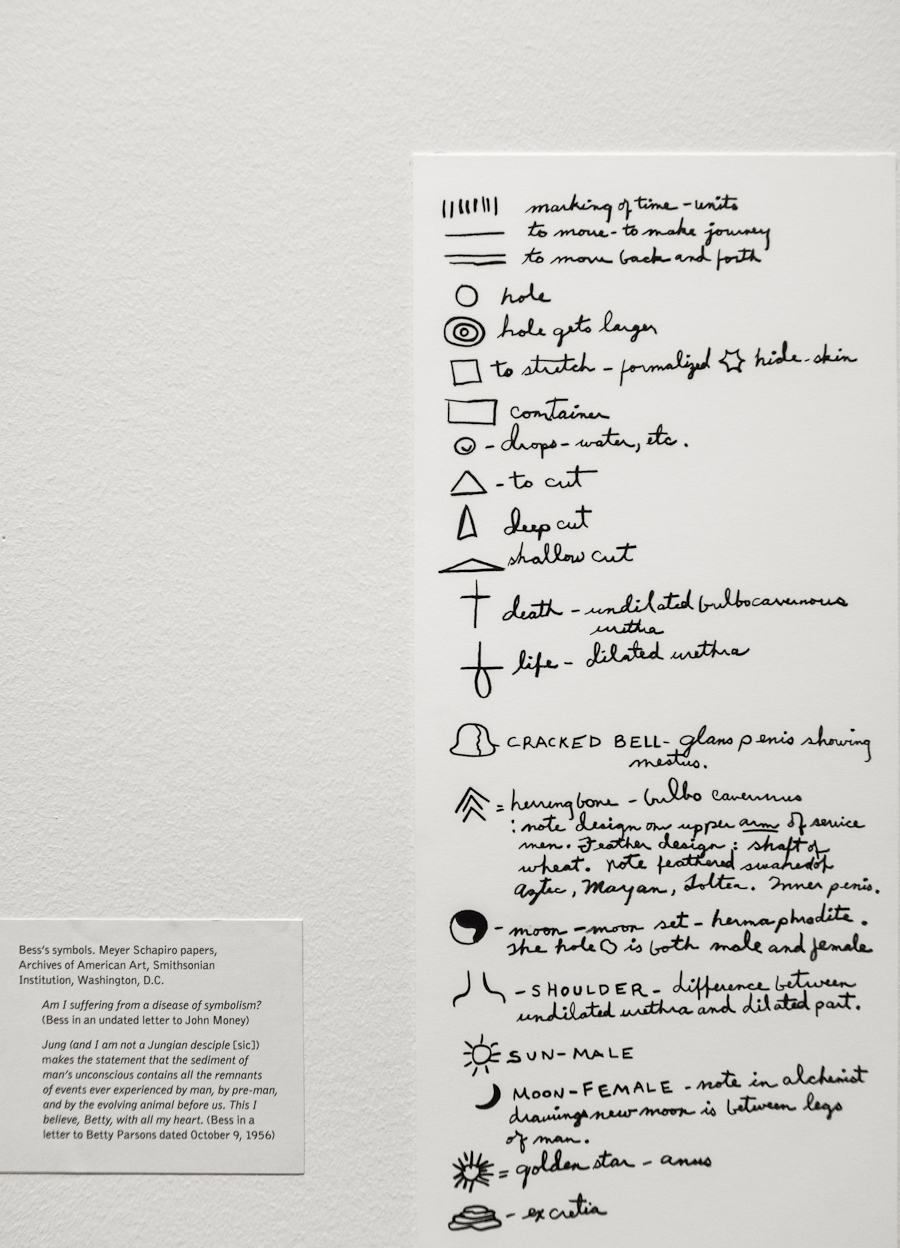 marking of time - units
to move - to make journey
to move back and forth
hole
hole gets larger
to stretch - formalized hide-skin
container
- drops - water, etc.
- to cut
deep cut
shallow cut
death - undilated bulbocavernous
urethra
life - dilated urethra
CRACKED BELL - glans penis showing
meatus.
= herringbone - bulbo cavernus
: note design on upper arm of service
men. Feather design : shaft of
wheat. Note feathered of
Aztec, Mayan, Toltec. Inner penis.
- moon - moon set - hermaphrodite.
The hole is both male and female
- SHOULDER - difference between
undilated urethra and dilated part.
SUN - MALE
MOON - FEMALE - note in alchemist
drawings new moon is between legs
of man.
= golden star - anus
- excretia
Bess's symbols. Meyer Schapiro papers,
Archives of American Art, Smithsonian
Institution, Washington, D.C.
Am I suffering from a disease of symbolism?
(Bess in an undated letter to John Money)
Jung (and I am not a Jungian desciple [sic])
makes the statement that the sediment of
man's unconscious contains all the remnants
of events ever experienced by man, by pre-man,
and by the evolving animal before us. This I
believe, Betty, with all my heart. (Bess in a
letter to Betty Parsons dated October 9, 1956)